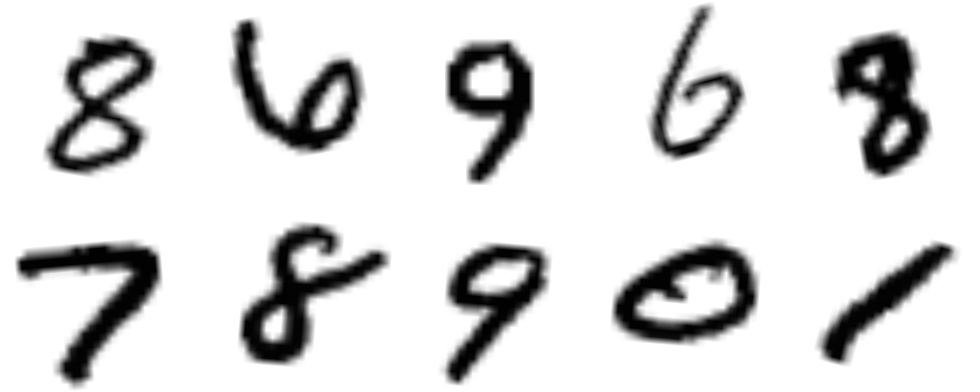 8 6 9 6 8
7 8 9 0 1